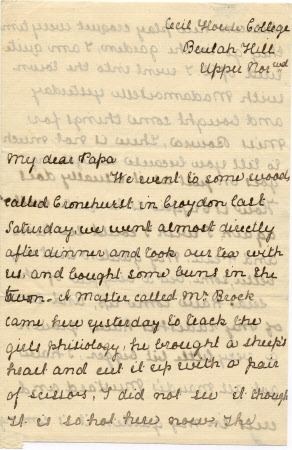 Cecil House College
Beulah Hill
Upper Norwd
My dear Papa
We went to some woods
called Cronehurst in Croydon last
Saturday, we went almost directly
after dinner and took our tea with
us, and bought some buns in the
town. A Master called Mr Brock
came here yesterday to teach the
girls phisiology, he brought a sheep's
heart and cut it up with a pair
of scissors, I did not see it though
It is so hot here now. The